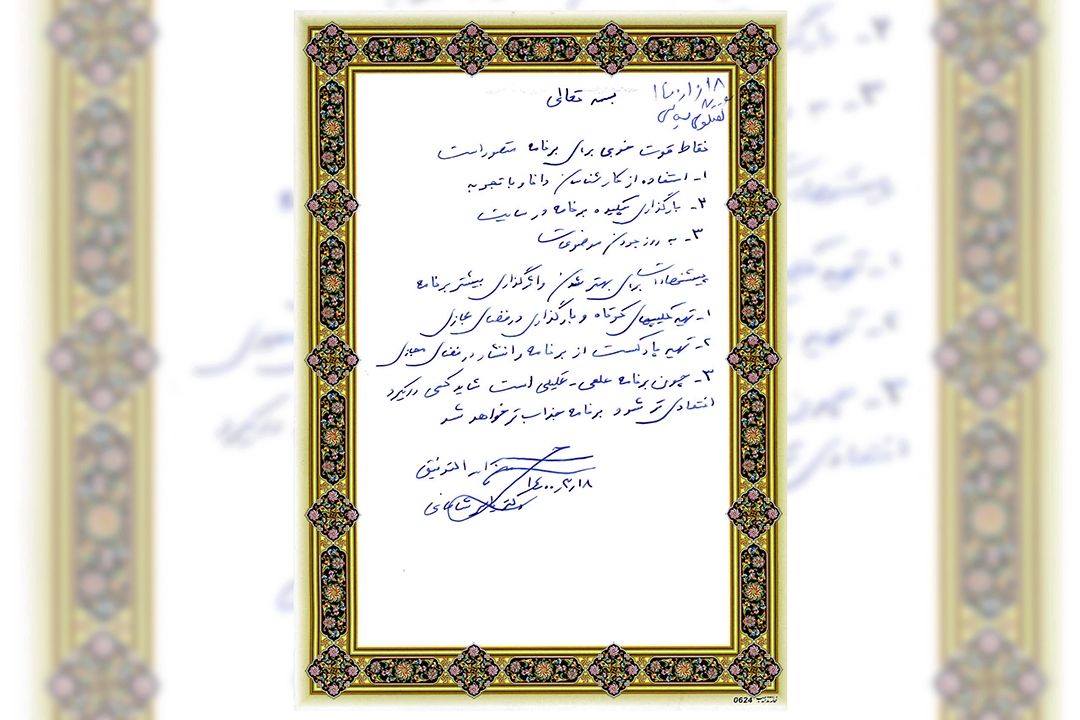 بسمه تعالی
نقاط قوت خوبی برای برنامه متصور است
۱- استفاده از کارشناسان دانا و با تجربه
۲- بارگذاری چکیده برنامه در سایت
۳- به روز بودن موضوعات
پیشنهادات برای بهتر شدن و اثرگذاری بیشتر برنامه
۱- تهیه کلیپهای کوتاه و بارگذاری در فضای مجازی
۲- تهیه پادکست از برنامه و انتشار در فضای مجازی
۳- چون برنامه علمی - تحلیلی است شاید کمی رویکرد
انتقادی تر شود برنامه جذاب تر خواهد شد
و من الله التوفیق
۱۴۰۰/۳/۱۸
دکتر شاهانی
0624